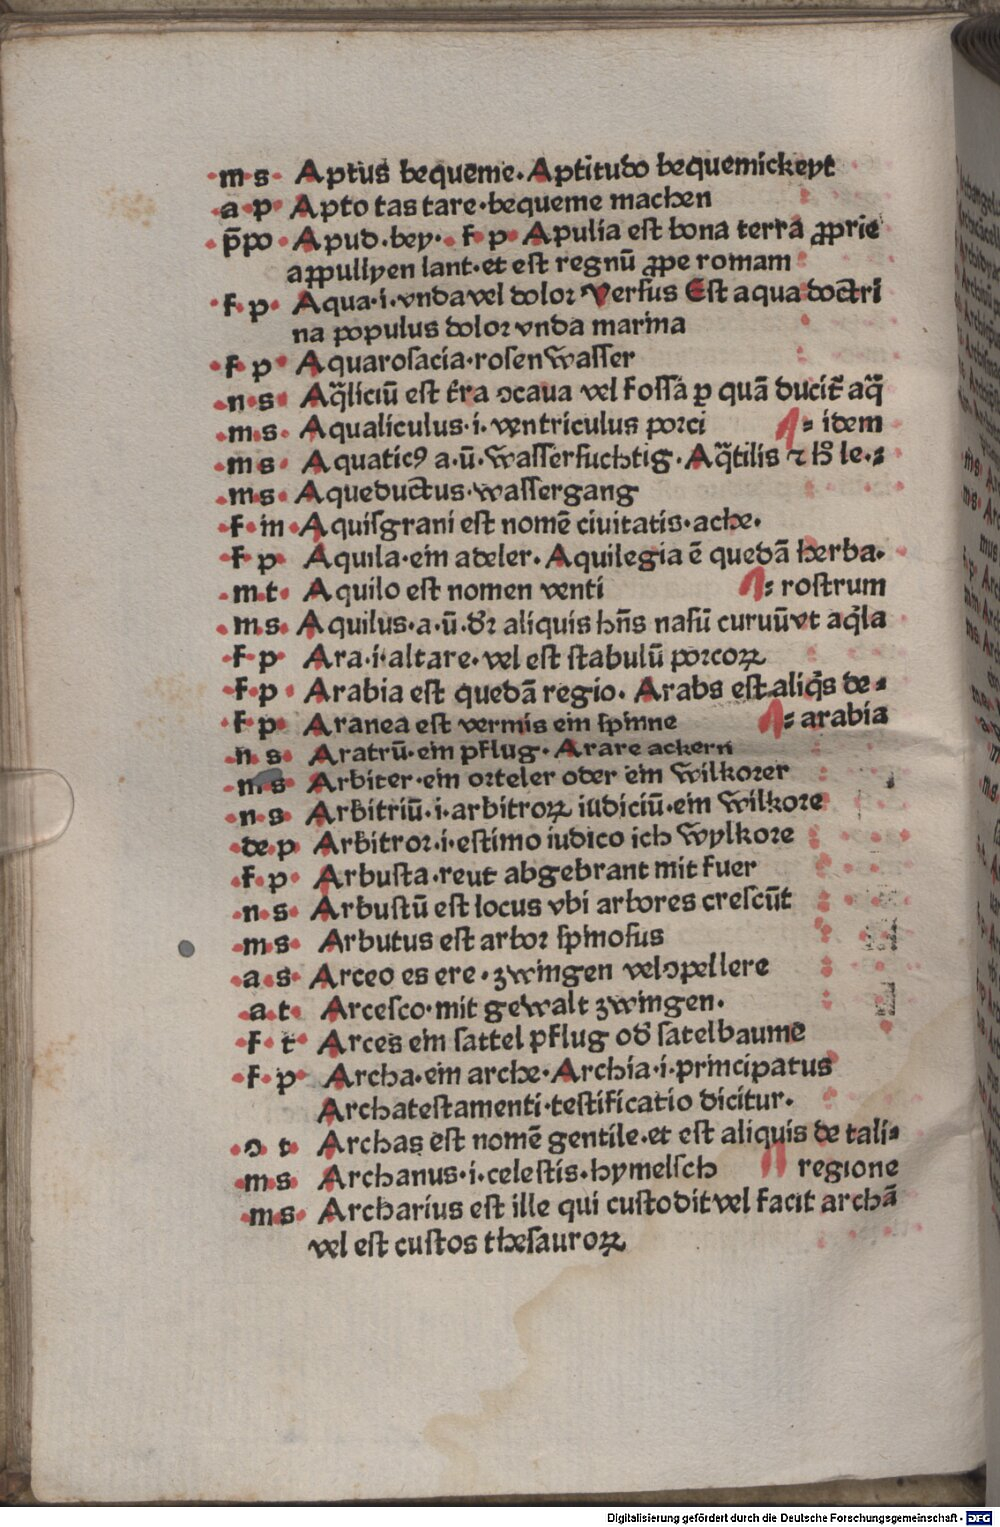 m s Aptus bequeme. Aptitudo bequemickeyt
a p Apto tas tare·bequeme machen
p̄po Apud·bey· f p Apulia est bona terra ꝓprie
aꝑpullyen lant·et est regnū ꝓpe romam
f p Aqua·i·vnda vel dolor Versus Est aqua doctri
na populus dolor vnda marina
f p Aquarosacia·rosenwasser
n s Aq̄liciū est t̄ra ɔcaua vel fossa ꝑ quā ducit̄ aq̄
m s Aqualiculus·i·ventriculus porci ⸗ idem
m s Aquaticꝰ a·ū·wasserfuchtig·Aq̄tilis ⁊ h̄ le·⸗
m s Aqueductus·wassergang
f m Aquisgrani est nomē ciuitatis·ache·
f p Aquila·ein adeler·Aquilegia ē quedā herba·
m t Aquilo est nomen venti ⸗ rostrum
m s Aquilus·a·ū·dꝛ aliquis hn̄s nasū curuū vt aq̄la
f p Ara·i·altare·vel est stabulū porcoꝝ
f p Arabia est quedā regio·Arabs est aliq̄s de⸗
f p Aranea est vermis ein spinne ⸗ arabia
n s Aratrū·ein pflug·Arare ackern
m s Arbiter·ein orteler oder ein wilkorer
n s Arbitriū·i·arbitroꝝ iudiciū·ein wilkore
de p Arbitror·i·estimo iudico ich wylkore
f p Arbusta·reut abgebrant mit fuer
n s Arbustū est locus vbi arbores crescūt
m s Arbutus est arbor spinosus
a s Arceo es ere·zwingen vel ɔpellere
a t Arcesco·mit gewalt zwingen·
f t Arces ein sattel pflug od̄ satelbaume
f p Archa·ein arche·Archia·i·principatus
Archatestamenti·testificatio dicitur·
ɔ t Archas est nomē gentile·et est aliquis de tali⸗
m s Archanus·i·celestis·hymelsch regione
m s Archarius est ille qui custodit vel facit archā
vel est custos thesauroꝝ
Digitalisierung gefördert durch die Deutsche Forschungsgemeinschaft - DFG